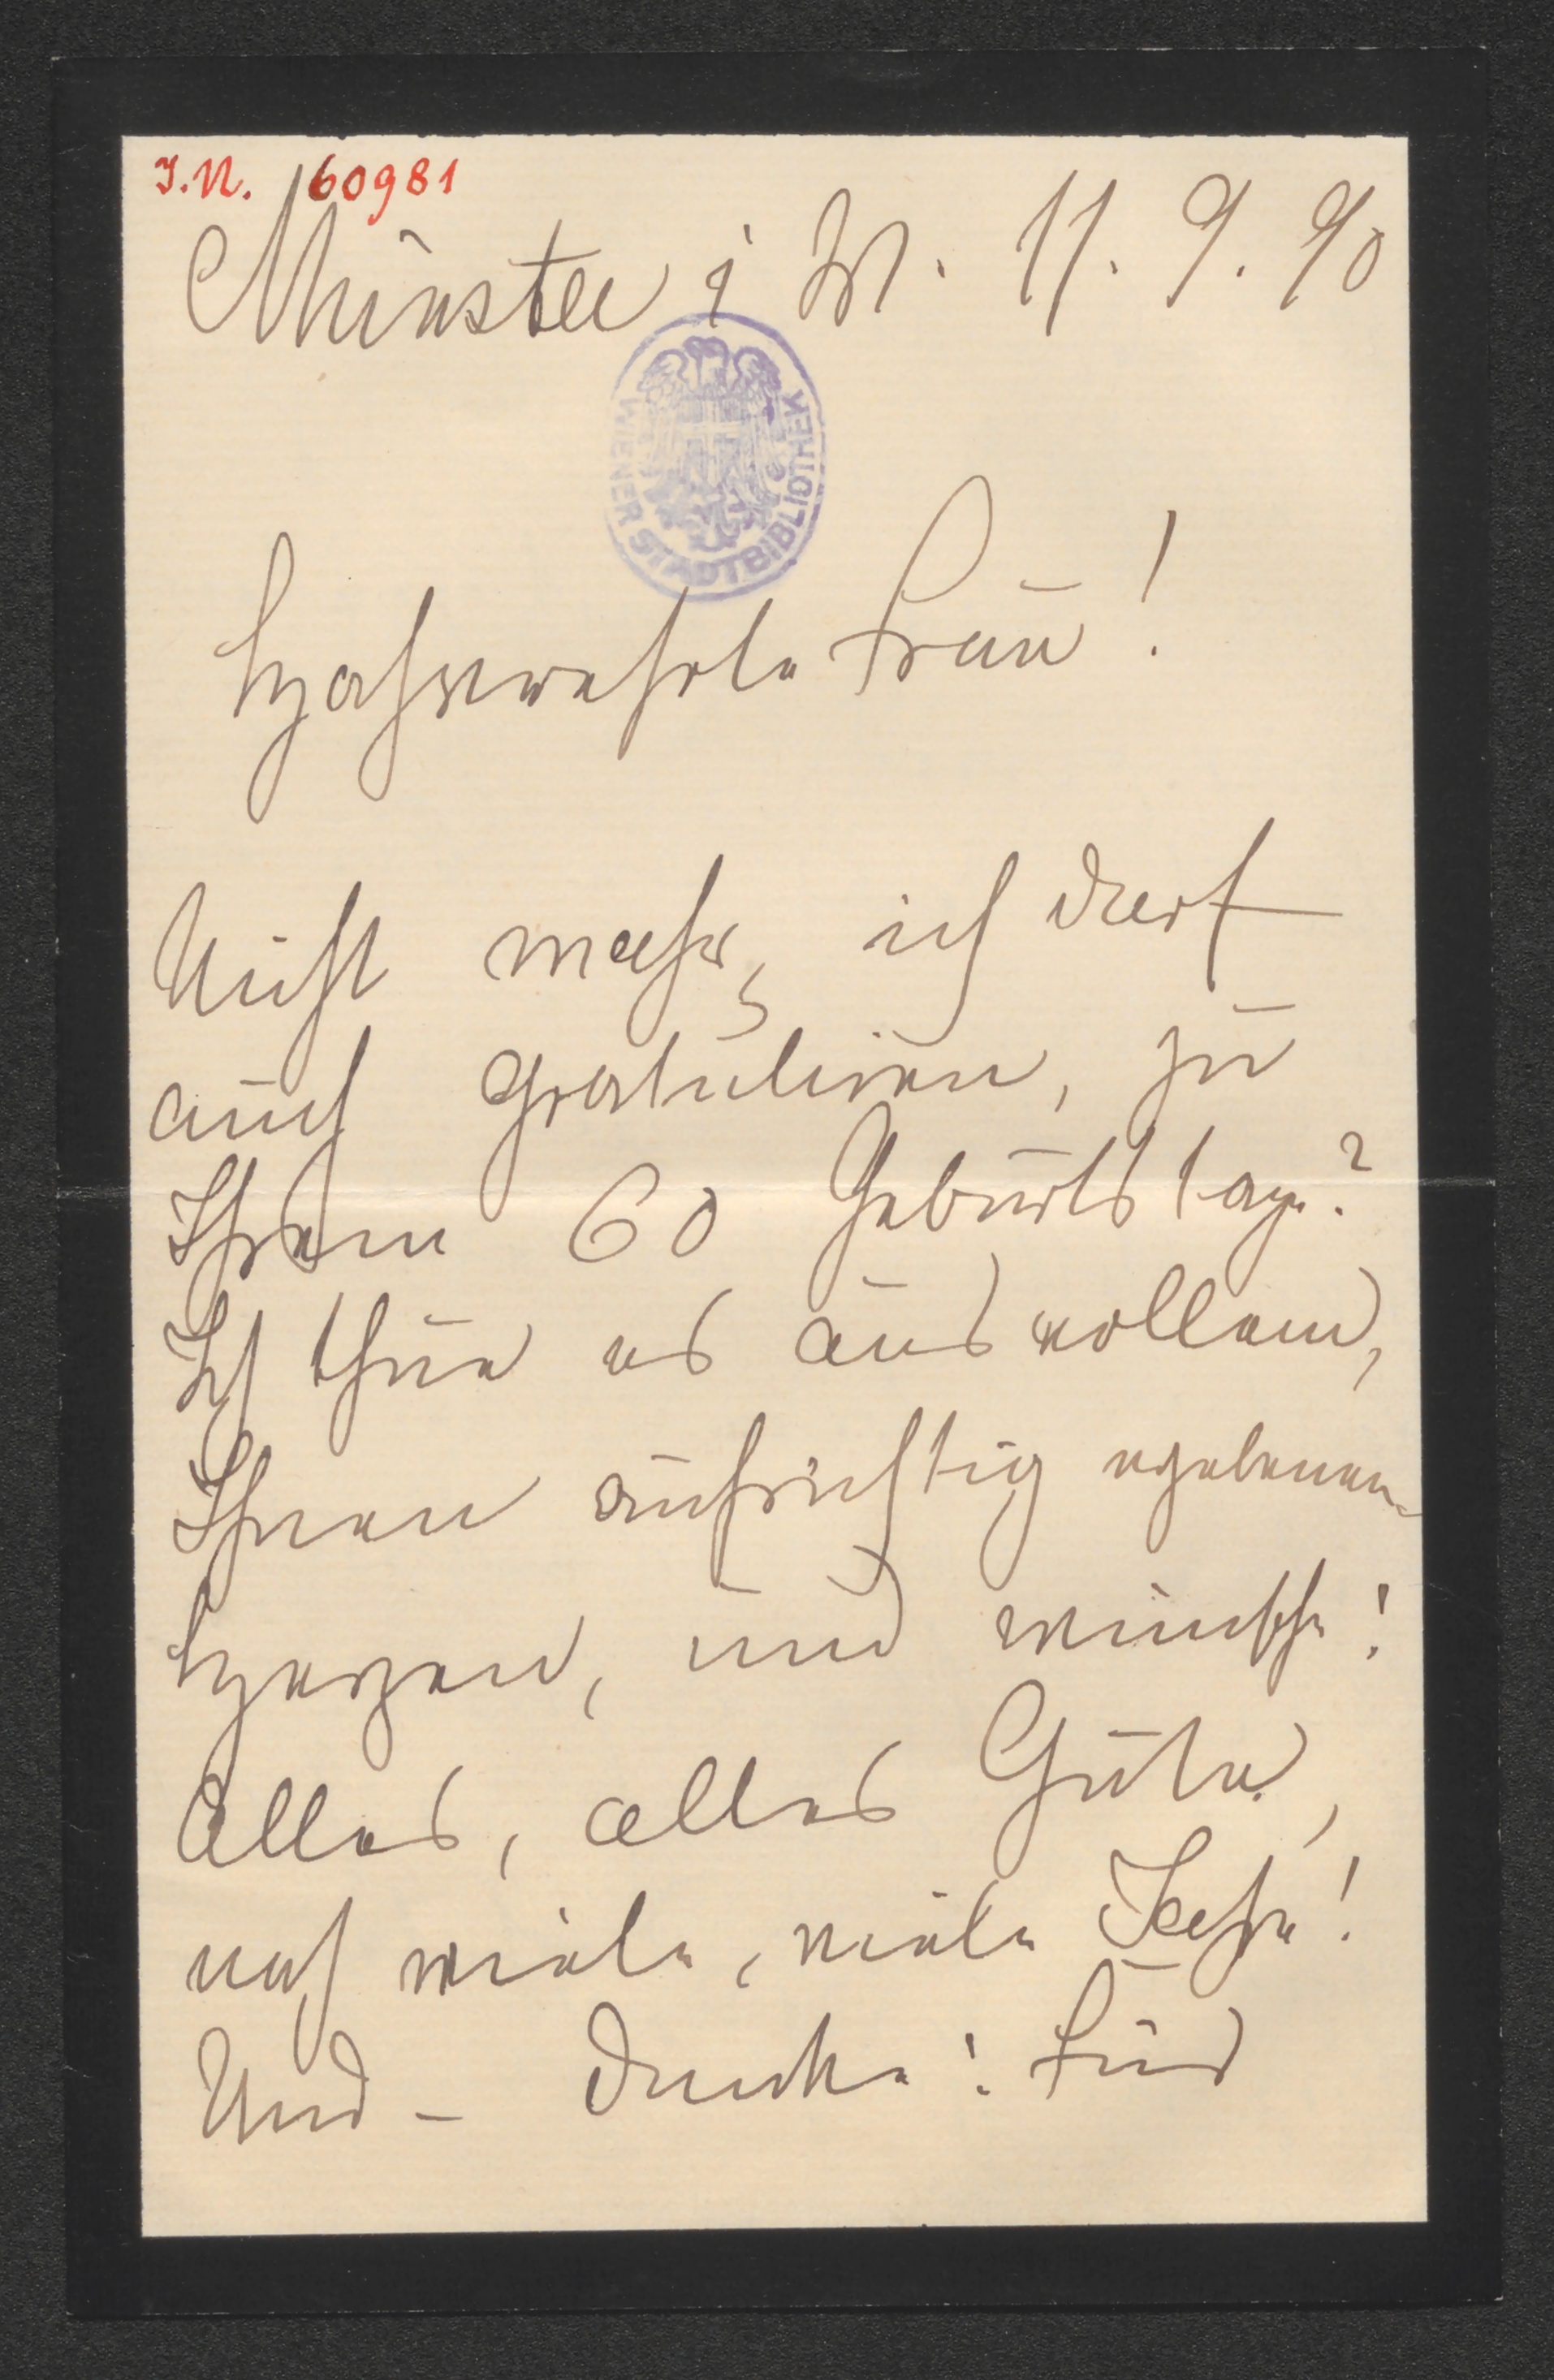 I.N. 160981
Münster i W. 11. 9. 90
WIENER STADTBIBLIOTHEK
Hochverehrte Frau!
Nicht wahr, ich darf
auch gratuliren, zu
Ihrem 60 Geburtstage?
Ich thue es aus vollem,
Ihnen aufrichtig ergebenen
Herzen, und wünsche:
Alles, alles Gute,
noch viele, viele Jahre!
Und – danke! Für